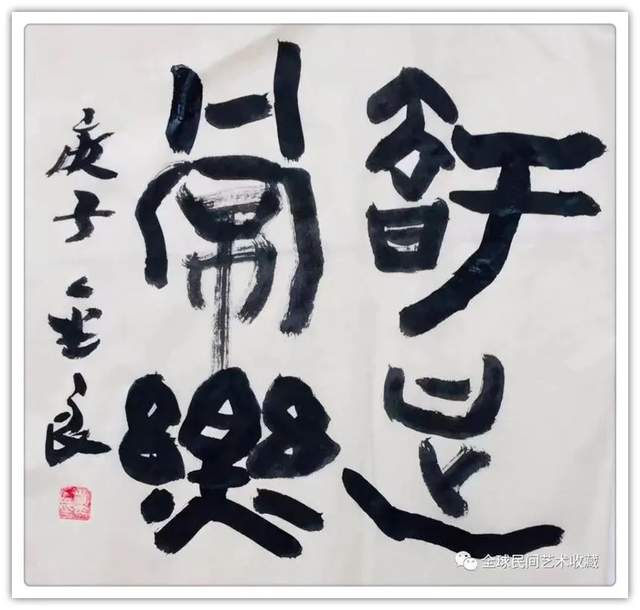 知足
常樂
庚子金良
全球民间艺术收藏